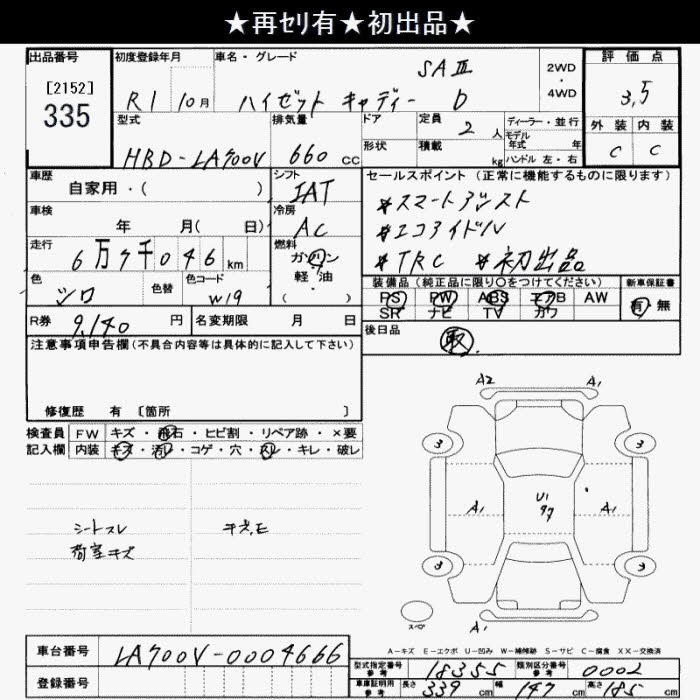 ★再セリ有★初出品★
出品番号 初度登録年月 車名・グレード 評価点
[2152]
335
R1 10月 ハイゼット キャディー SAⅢ D 2WD・4WD 3,5
型式 排気量 ドア 定員 2人 ディーラー・並行 外装 内装
HBD-LA700V 660cc 形状 積載 kg モデル年式 年 ハンドル 左・右 C C
車歴 自家用・( ) シフト IAT セールスポイント (正常に機能するものに限ります)
車検 年 月( 日) 冷房 AC *スマートアシスト
*エコアイドル
走行 6万7千046km 燃料 ガソリン・軽油 ( ) *TRC *初出品
色 シロ 色替 色コード W19 装備品 (純正品に限り○をつけてください) 新車保証書
PS PW ABS エアB AW 有 無
SR ナビ TV カワ
R券 9,140円 名変期限 月 日 後日品 取
注意事項申告欄 (不具合内容等は具体的に記入して下さい)
修復歴 有 [箇所 ]
検査員 FW キズ・飛石・ヒビ割・リペア跡・×要
記入欄 内装 キズ・汚レ・コゲ・穴・スレ・キレ・破レ
シートスレ キズ,E
荷室キズ
A2 A1
3 3
A1 U1 A1
97
3 3
A1
スペア
A-キズ E-エクボ U-凹み W-補修跡 S-サビ C-腐食 XX-交換済
車台番号 LA700V-0004666
登録番号
型式指定番号 参考 18355 類別区分番号 参考 0002
車庫証明用 参考 長さ 339cm 幅 147cm 高さ 185cm